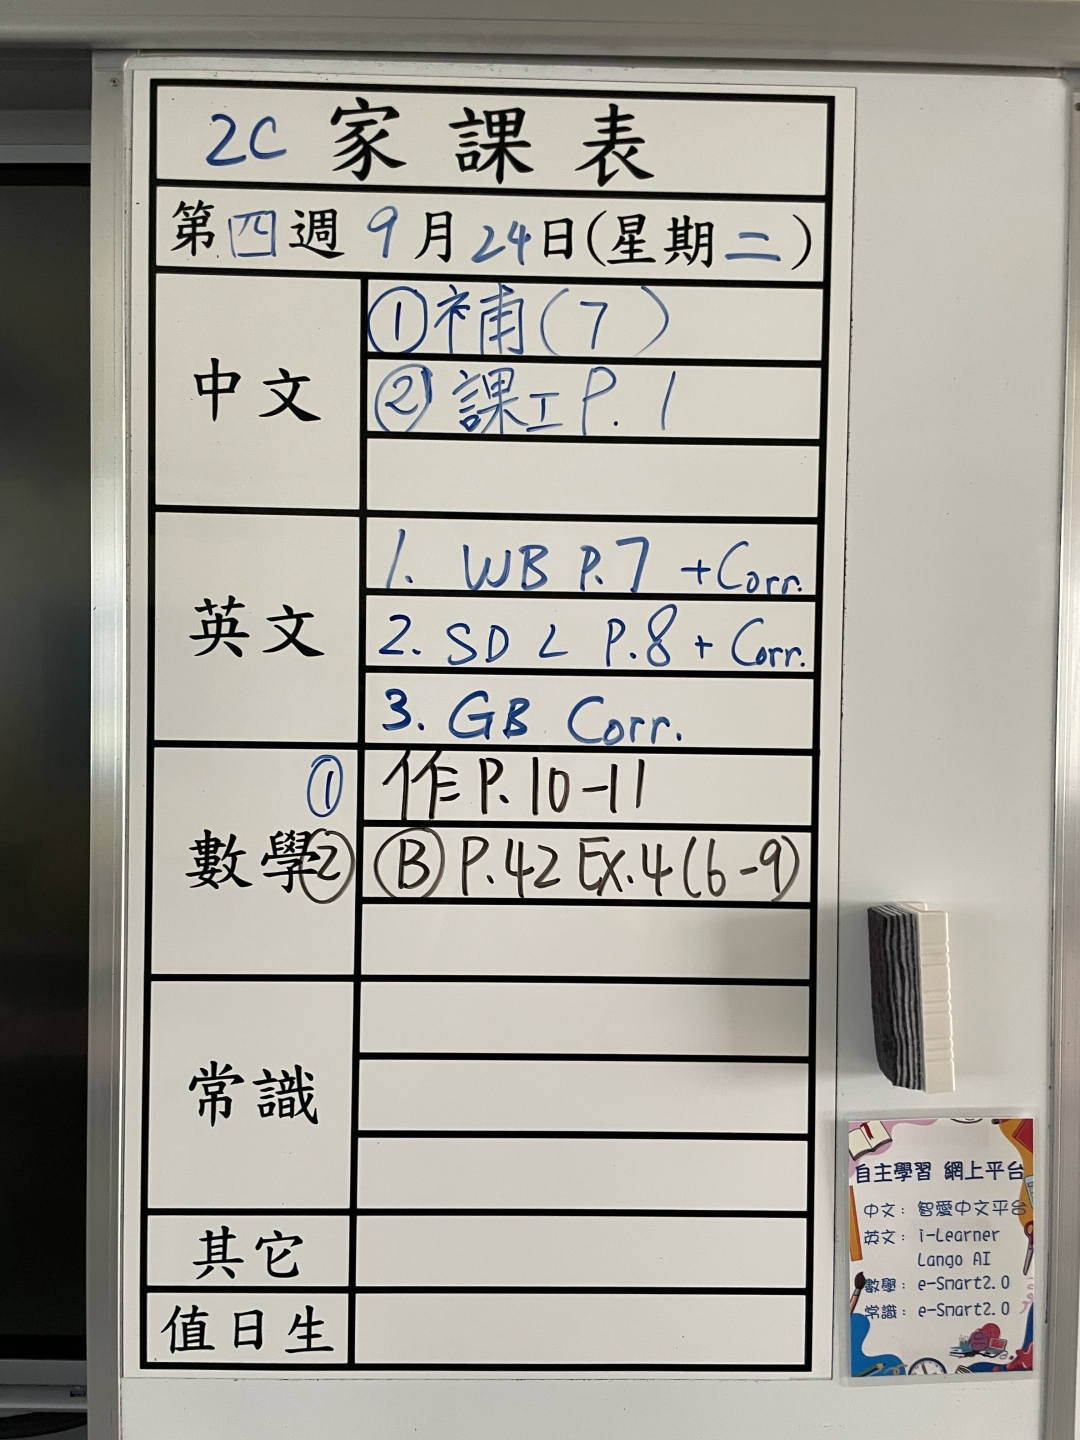 2C 家課表
第四週 9月24日(星期二)
中文
①補(7)
②課工P.1
英文
1. WB P.7 +Corr.
2. SDL P.8 + Corr.
3. GB Corr.
數學
① 作P.10-11
② Ⓑ P.42 EX.4(6-9)
常識
其它
值日生
自主學習 網上平台
中文：智愛中文平台
英文：i-Learner
Lango AI
數學：e-Smart2.0
常識：e-Smart2.0